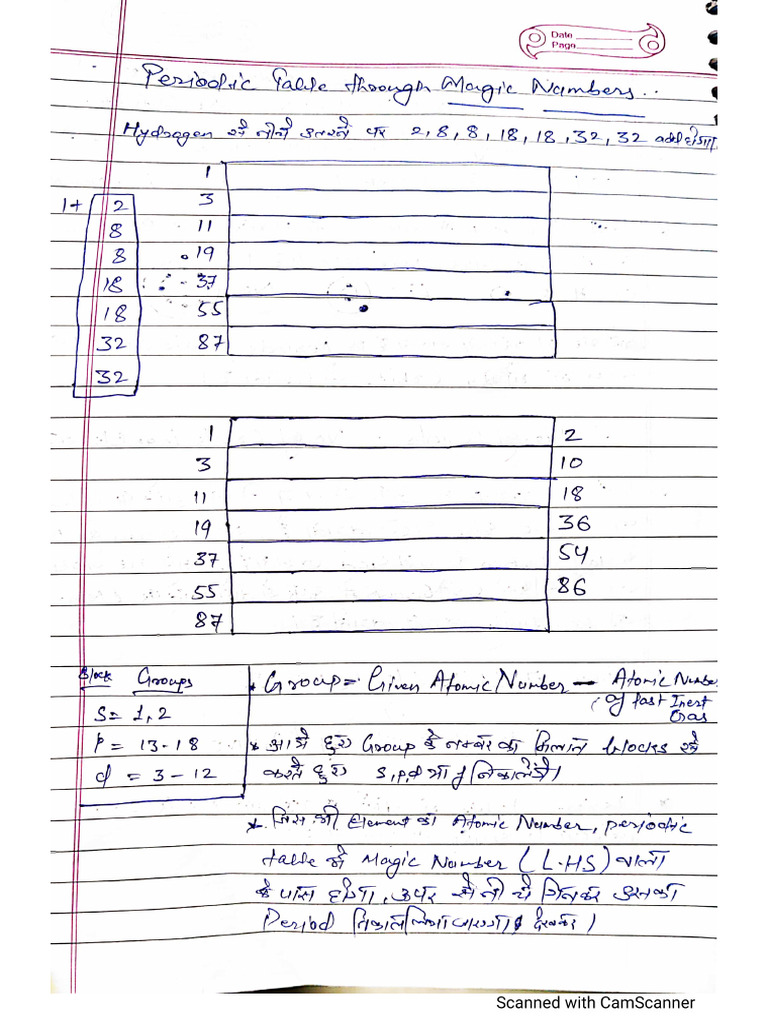 Date
Page
Periodic Table through Magic Numbers..
Hydrogen से नीचे उतरने पर 2, 8, 8, 18, 18, 32, 32 add होगा
1
1+ 2 3
8 11
8 19
18 37
18 55
32 87
32
1 2
3 10
11 18
19 36
37 54
55 86
87
Block Groups
S = 1, 2
P = 13-18
d = 3-12
* Group = Given Atomic Number - Atomic Number
of past Inert
Gas
* आये हुए Group के नम्बर का मिलान blocks से
करते हुए s, p, d या f निकालेंगे।
* जिस भी Element का Atomic Number, periodic
table में Magic Number (L.HS) वाला
के पास होगा, ऊपर से नीचे गिनकर उसका
Period निकाल लिया जाएगा देखकर।
Scanned with CamScanner